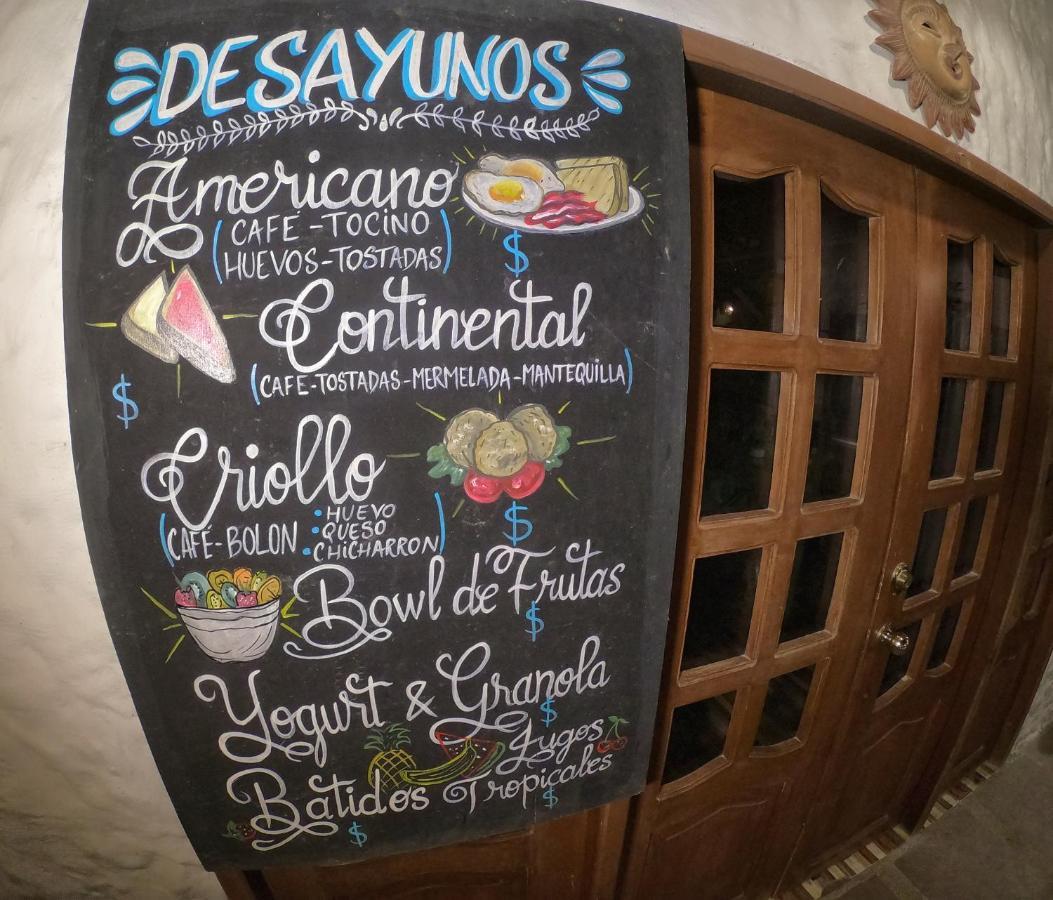 DESAYUNOS
Americano
(CAFÉ - TOCINO
HUEVOS-TOSTADAS)
$
Continental
(CAFE-TOSTADAS-MERMELADA-MANTEQUILLA)
$
Criollo
(CAFÉ-BOLON • HUEVO
• QUESO
• CHICHARRON)
$
Bowl de Frutas
$
Yogurt & Granola
$
Jugos
Tropicales
$
Batidos
$